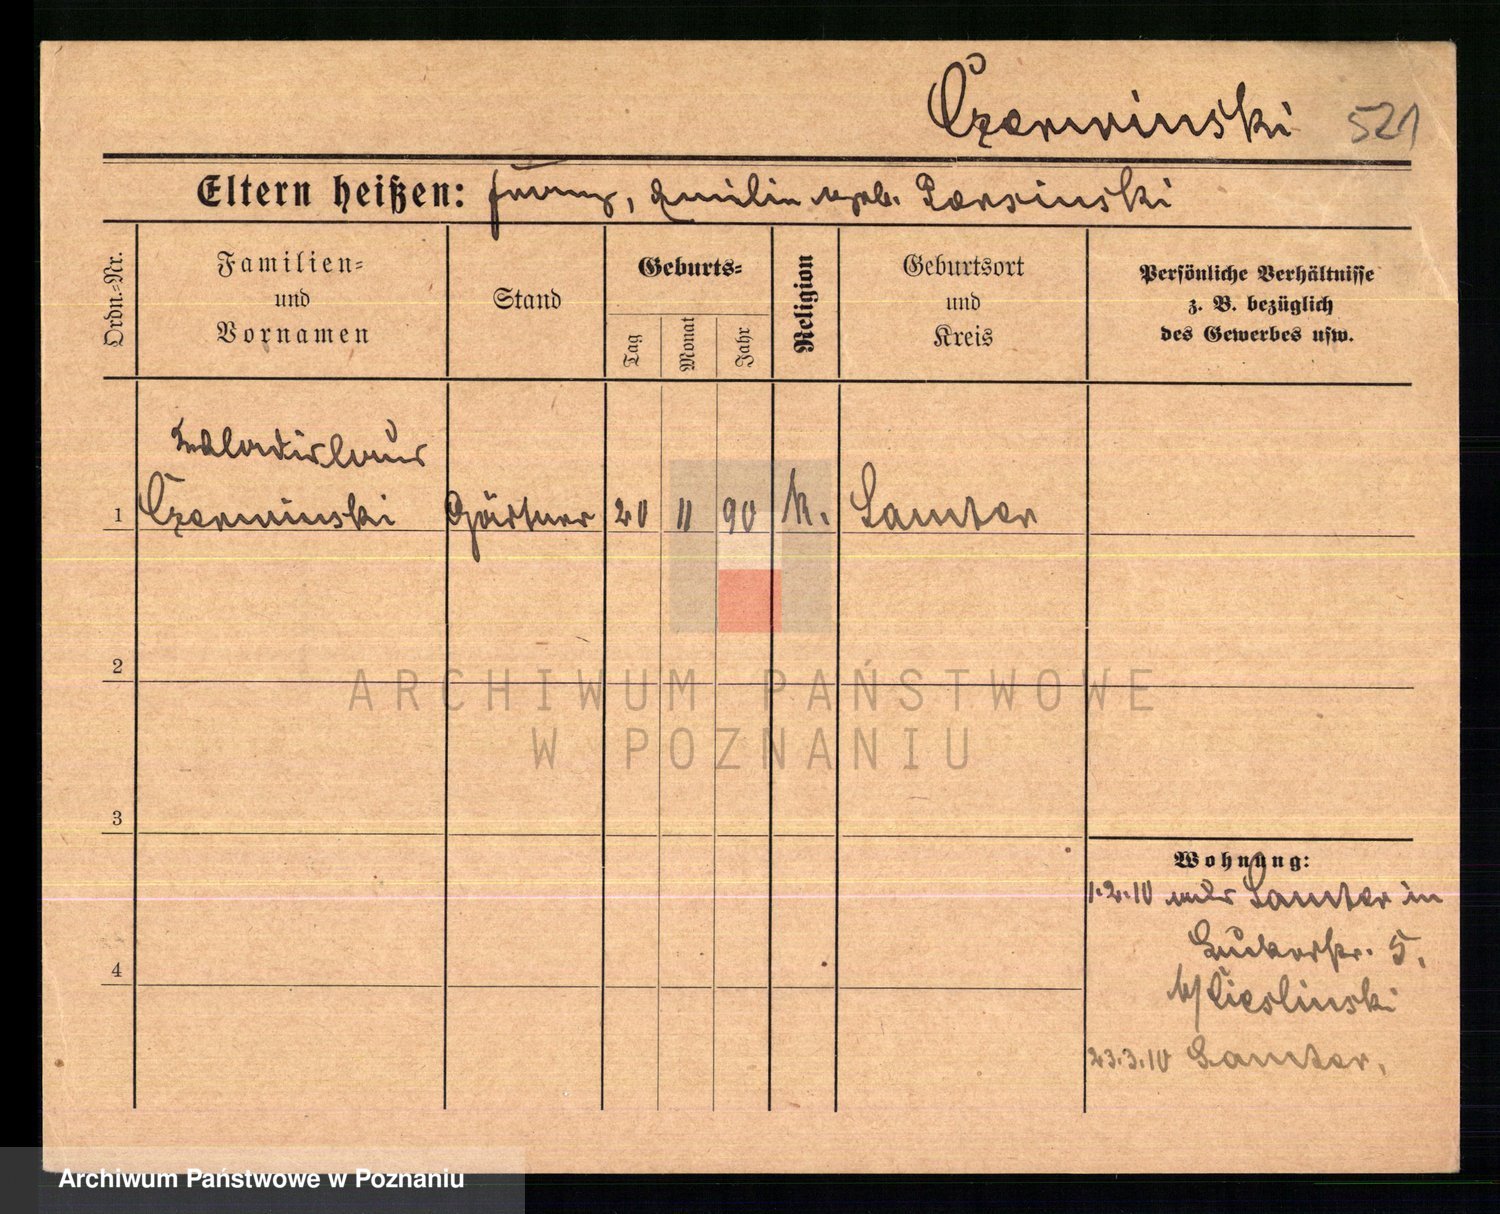 Czerwinski 521
Eltern heißen: Franz, Emilie geb. Parsinski
Ordn.-Nr.
Familien-
und
Vornamen
Stand
Geburts-
Tag
Monat
Jahr
Religion
Geburtsort
und
Kreis
Persönliche Verhältnisse
z. B. bezüglich
des Gewerbes usw.
Wladislaus
1 Czerwinski Gärtner 20 11 90 k. Samter
2
ARCHIWUM PAŃSTWOWE
W POZNANIU
3
Wohnung:
1.2.10 Samter in
5.
4
b/Cieslinski
23.3.10 Samter.
Archiwum Państwowe w Poznaniu